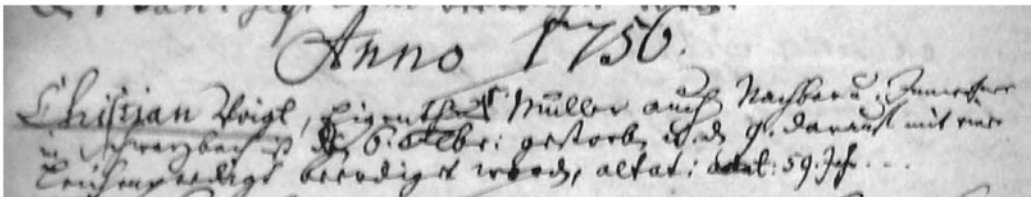 Anno 1756.
Christian Voigt, Eigenth. Müller auch Nachbar u. Inwohner
in Schwarzbach ist d. 6. gestorb. u. d. 9. darauf mit einer
Leichenpredigt beerdigt worden, aetat: 59. Jahr.